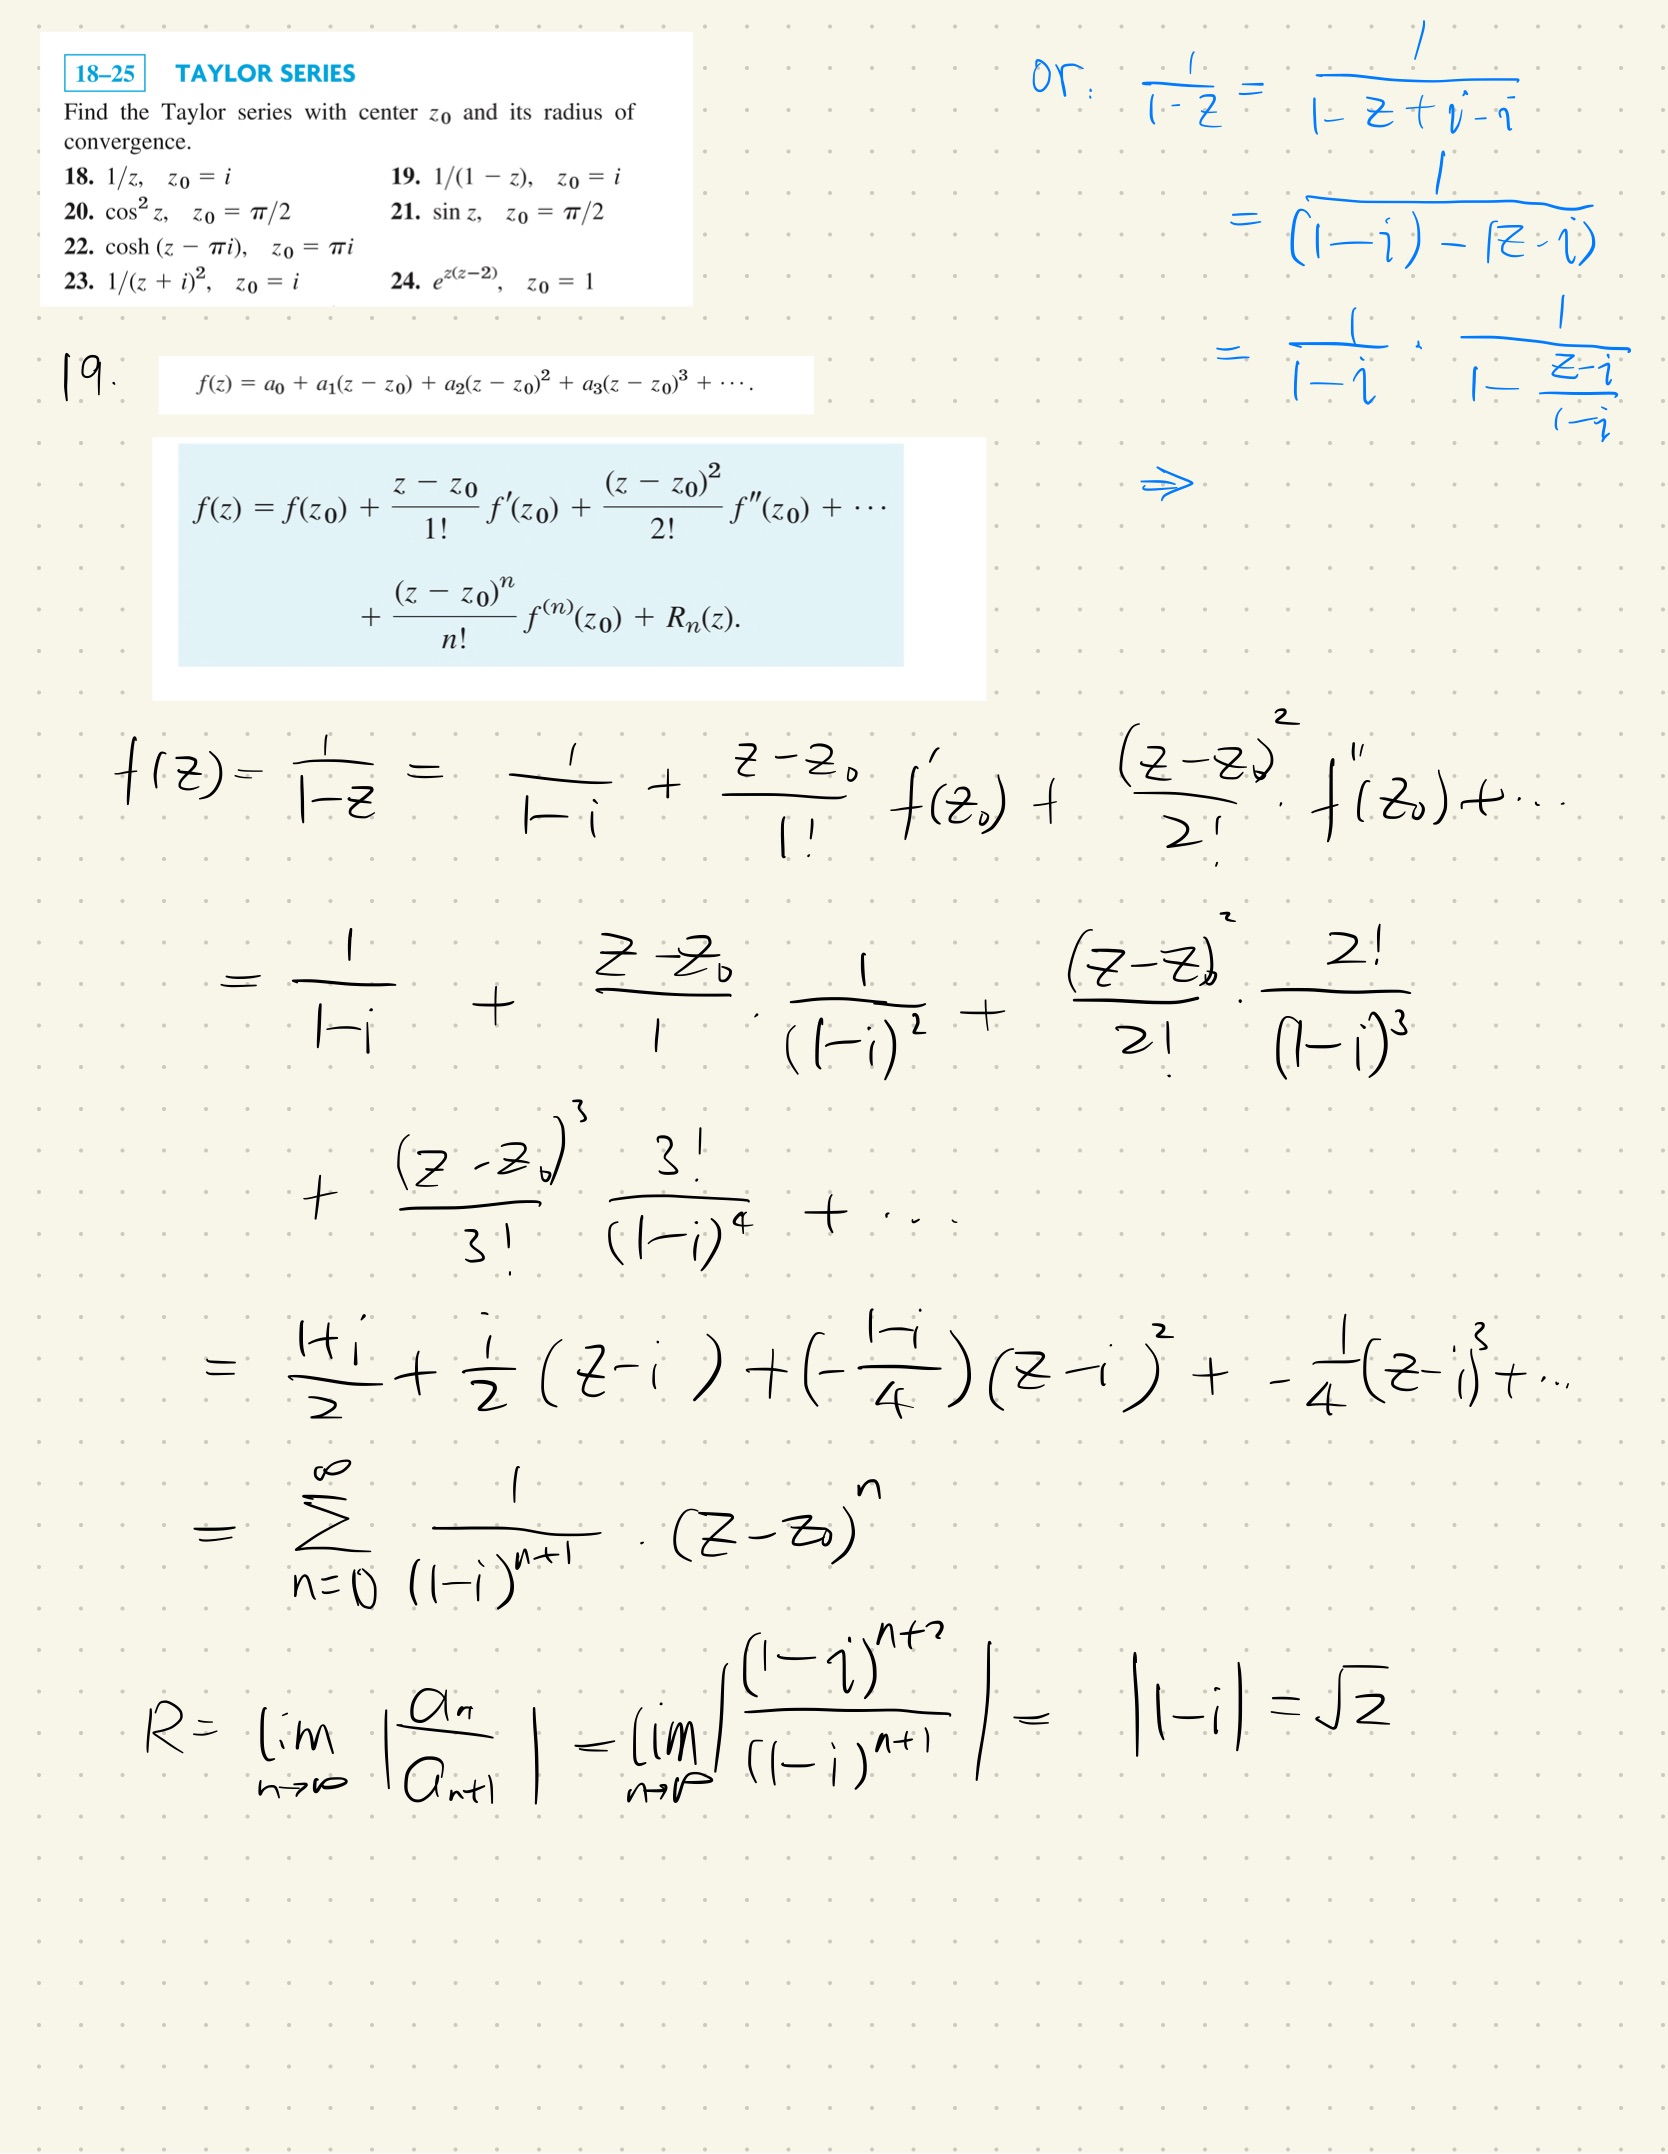 18–25 TAYLOR SERIES
Find the Taylor series with center z₀ and its radius of
convergence.
18. 1/z, z₀ = i 19. 1/(1 − z), z₀ = i
20. cos² z, z₀ = π/2 21. sin z, z₀ = π/2
22. cosh (z − πi), z₀ = πi
23. 1/(z + i)², z₀ = i 24. e^{z(z−2)}, z₀ = 1
or: 1/(1-z) = 1/(1-z+i-i)
= 1/((1-i)-(z-i))
= 1/(1-i) · 1/(1-(z-i)/(1-i))
⇒
19. f(z) = a₀ + a₁(z − z₀) + a₂(z − z₀)² + a₃(z − z₀)³ + ⋯.
f(z) = f(z₀) + (z − z₀)/1! f′(z₀) + (z − z₀)²/2! f″(z₀) + ⋯
+ (z − z₀)ⁿ/n! f⁽ⁿ⁾(z₀) + Rₙ(z).
f(z) = 1/(1-z) = 1/(1-i) + (z-z₀)/1! f′(z₀) + (z-z₀)²/2! · f″(z₀) + ...
= 1/(1-i) + (z-z₀)/1 · 1/(1-i)² + (z-z₀)²/2! · 2!/(1-i)³
+ (z-z₀)³/3! 3!/(1-i)⁴ + ...
= (1+i)/2 + i/2 (z-i) + (-(1-i)/4)(z-i)² + -1/4(z-i)³ + ...
= ∑_{n=0}^{∞} 1/(1-i)^{n+1} · (z-z₀)ⁿ
R = lim_{n→∞} |aₙ/aₙ₊₁| = lim_{n→∞} |(1-i)^{n+2}/(1-i)^{n+1}| = |1-i| = √2